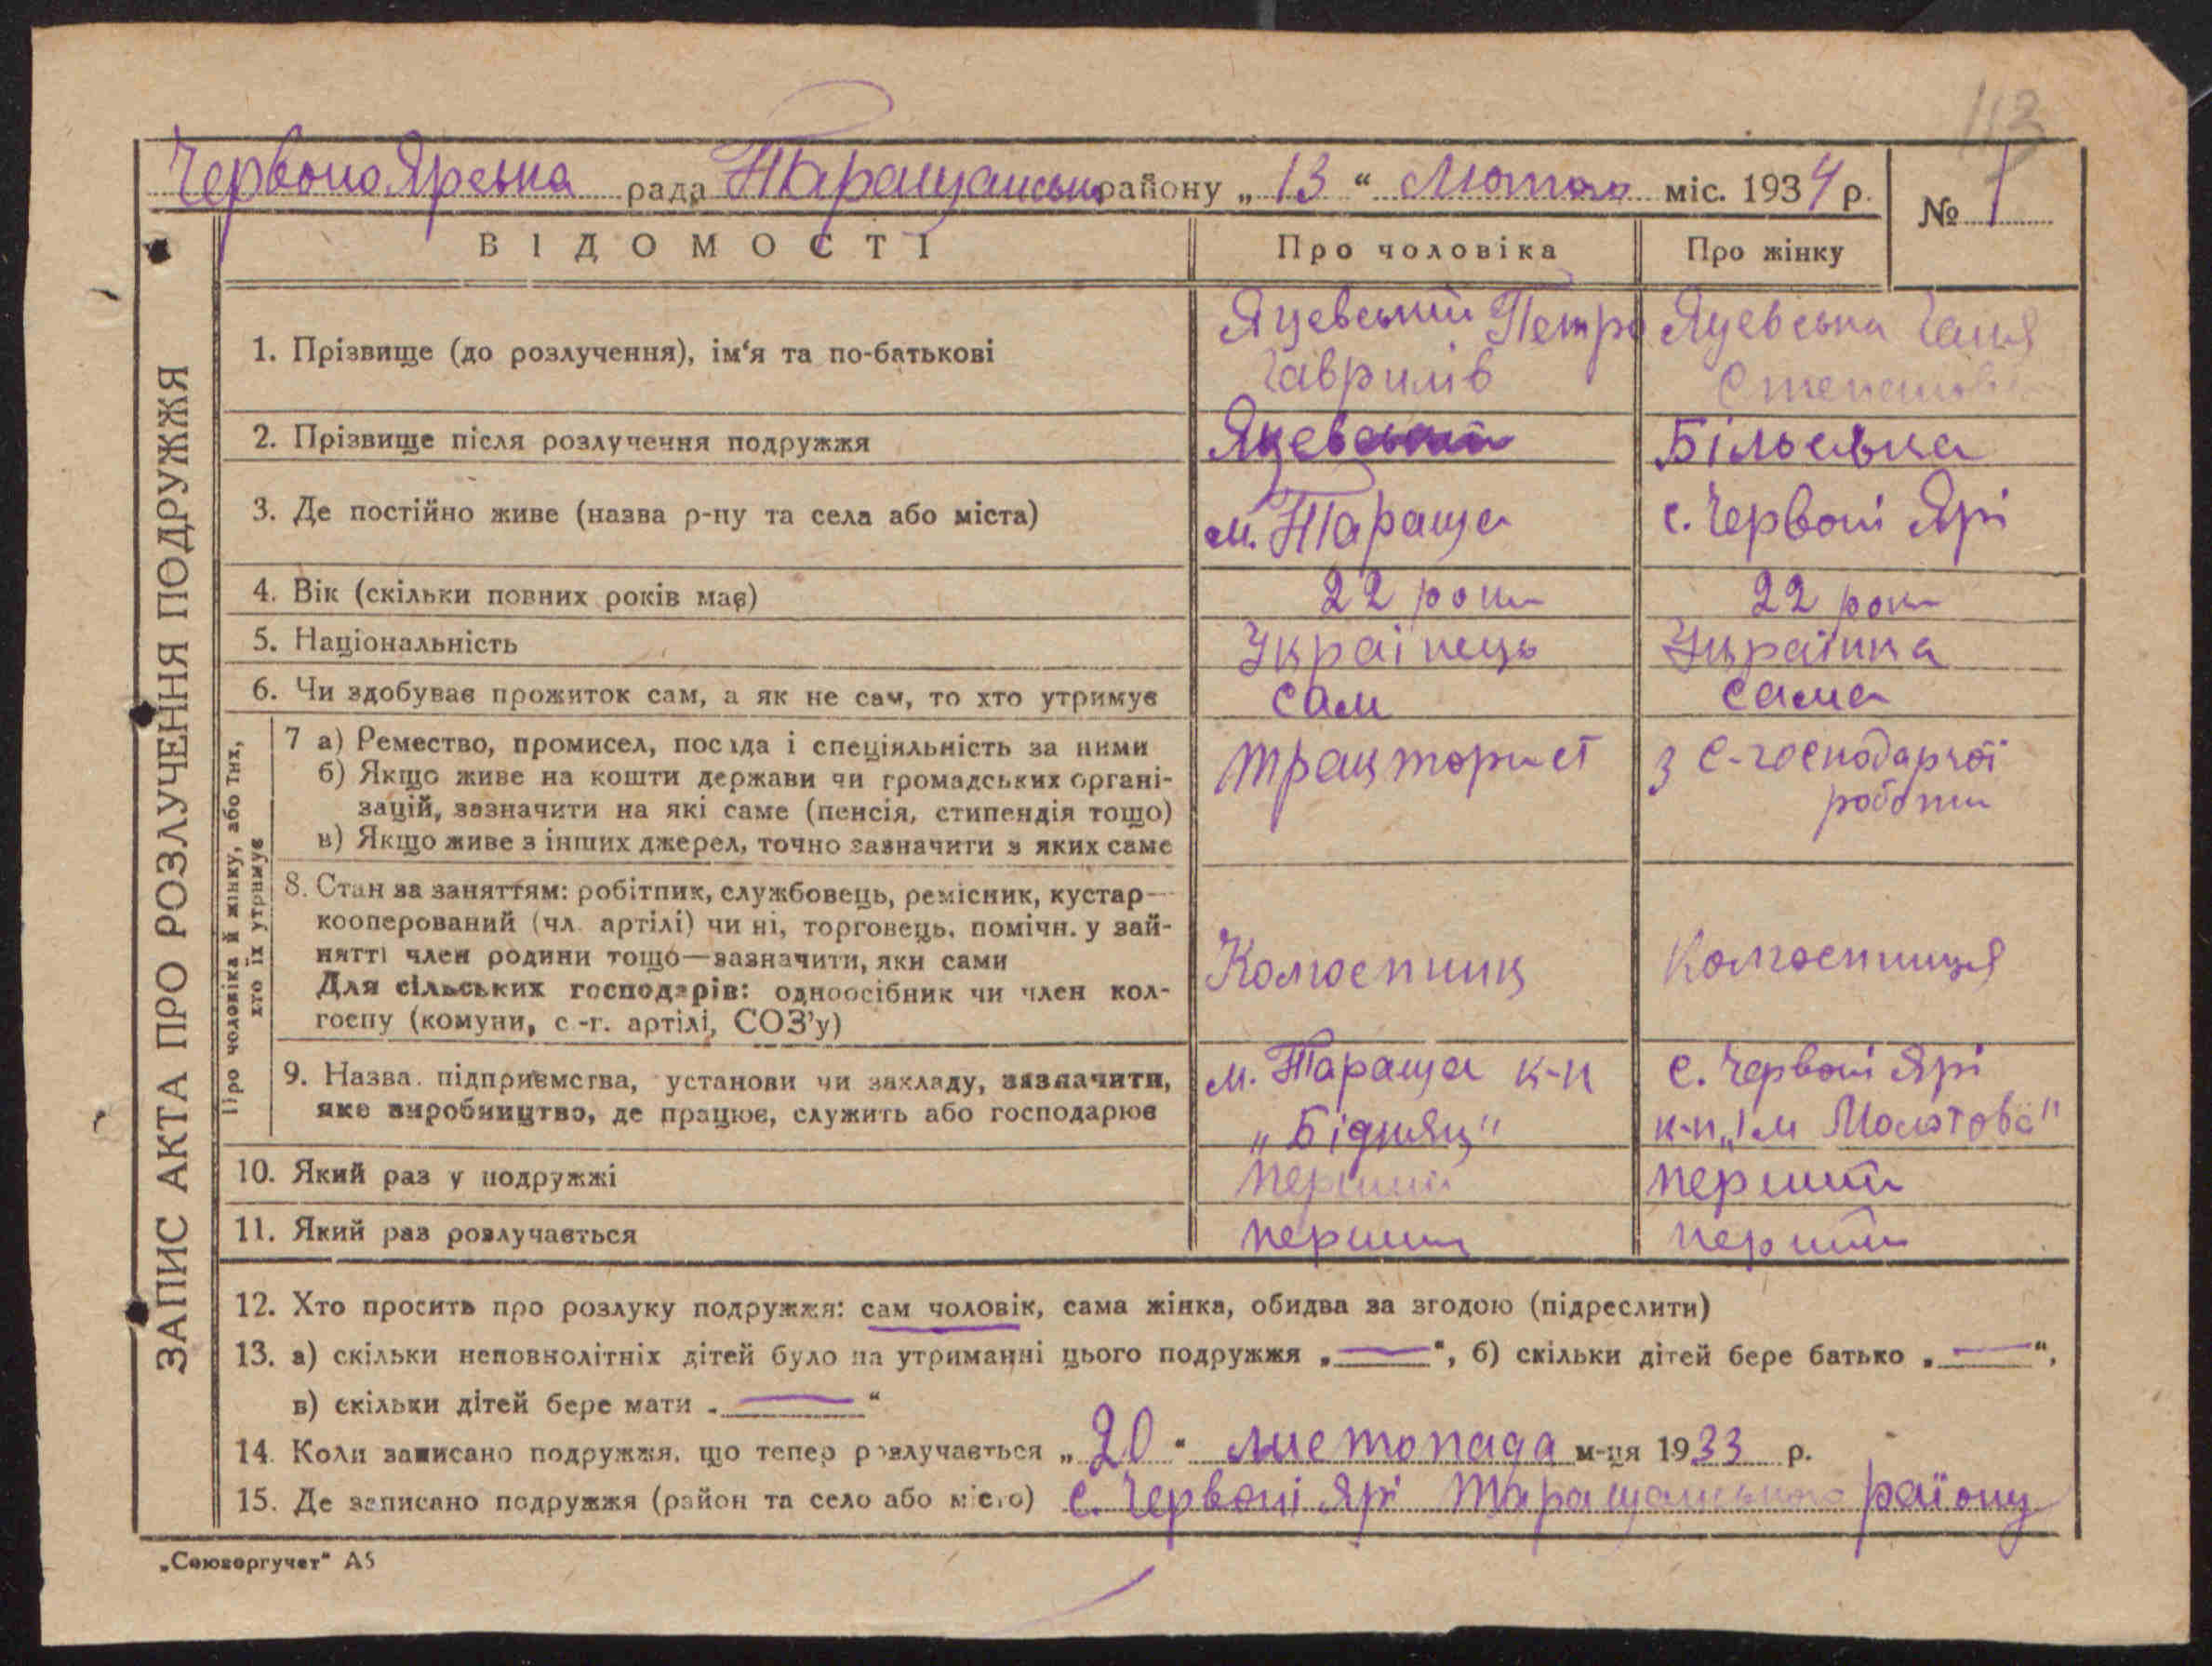 113
Червоно Яреська рада Таращансько району „ 13 “ Лютого міс. 1934 р.
№ 1
ВІДОМОСТІ
Про чоловіка
Про жінку
1. Прізвище (до розлучення), ім‘я та по-батькові
Яцевський Петро
Гаврилів
Яцевська Ганя
Степанівна
2. Прізвище після розлучення подружжя
Яцевський
Більська
3. Де постійно живе (назва р-ну та села або міста)
м. Тараща
с. Червоні Ярі
4. Вік (скільки повних років має)
22 роки
22 роки
5. Національність
Українець
Українка
6. Чи здобуває прожиток сам, а як не сам, то хто утримує
сам
сама
Про чоловіка й жінку, або тих,
хто їх утримує
7 а) Ремество, промисел, посада і спеціяльність за ними
б) Якщо живе на кошти держави чи громадських органі-
зацій, зазначити на які саме (пенсія, стипендія тощо)
в) Якщо живе з інших джерел, точно зазначити з яких саме
тракторист
з с-господарчої
роботи
8. Стан за заняттям: робітник, службовець, ремісник, кустар—
кооперований (чл. артілі) чи ні, торговець, помічн. у зай-
нятті член родини тощо—зазначити, яки сами
Для сільських господарів: одноосібник чи член кол-
госпу (комуни, с.-г. артілі, СОЗ’у)
Колгоспник
Колгоспниця
9. Назва підприємства, установи чи закладу, зазначити,
яке виробництво, де працює, служить або господарює
м. Тараща к-п
„Бідняк"
с. Червоні Ярі
к-п „Ім Молотова"
10. Який раз у подружжі
перший
перший
11. Який раз розлучається
перший
перший
12. Хто просить про розлуку подружжя: сам чоловік, сама жінка, обидва за згодою (підреслити)
13. а) скільки неповнолітніх дітей було на утриманні цього подружжя „ — “, б) скільки дітей бере батько „ — “,
в) скільки дітей бере мати „ — “
14. Коли записано подружжя, що тепер розлучається „ 20 “ листопада м-ця 1933 р.
15. Де записано подружжя (район та село або місто) с. Червоні Ярі Таращанського району
„Союзоргучет“ А5
ЗАПИС АКТА ПРО РОЗЛУЧЕННЯ ПОДРУЖЖЯ